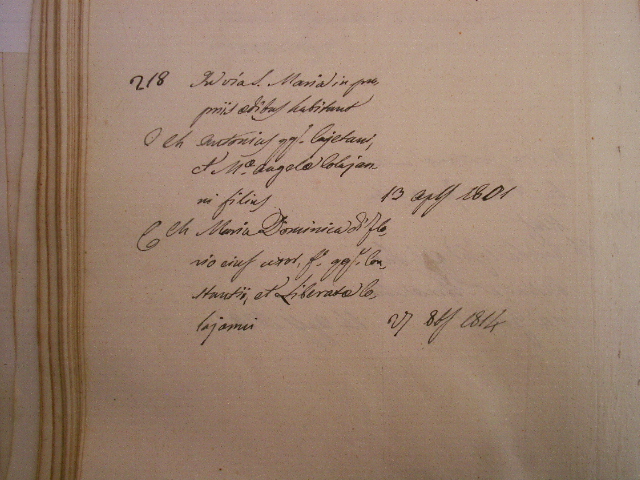 218 In via S. Maria in pro,
priis ædibus habitant
Ch Antonius qq. Cajetani,
et M.æ Angelæ Colajan
ni filius 13 apls 1801
C Ch Maria Dominica di Flo,
rio eius uxor, f. qq. Con,
stantii, et Liberatæ Co,
lajanni 27 8bs 1814